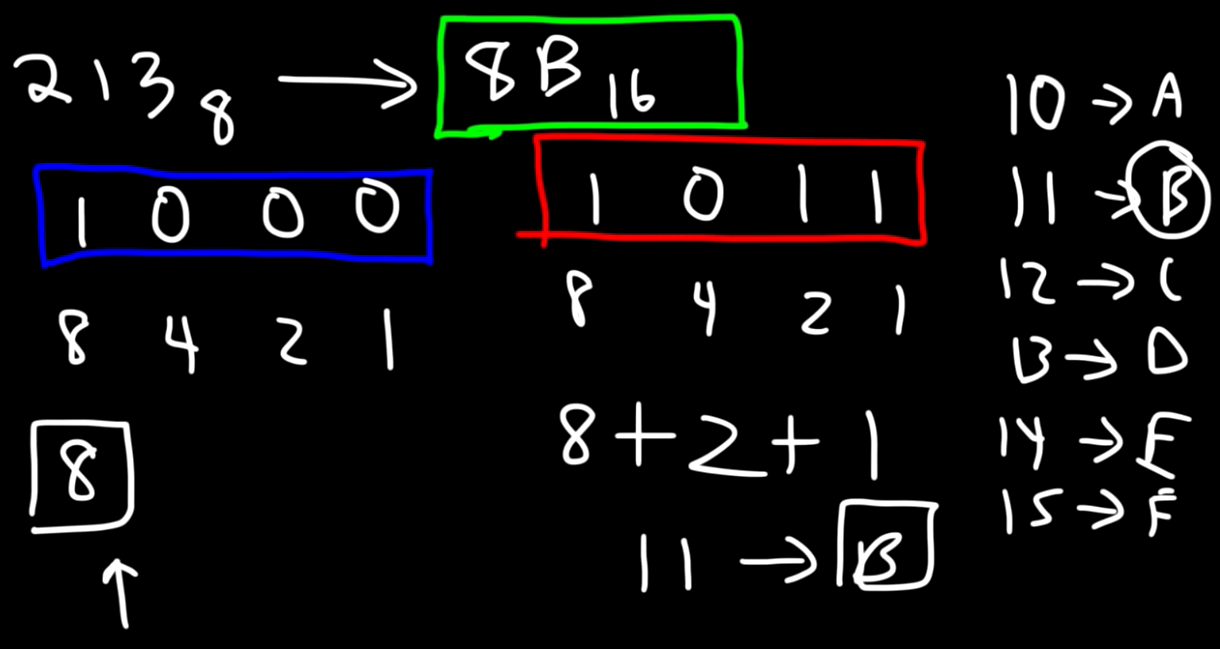 213₈ → 8B₁₆
1 0 0 0
8 4 2 1
8
↑
1 0 1 1
8 4 2 1
8+2+1
11 → B
10 → A
11 → B
12 → C
13 → D
14 → E
15 → F